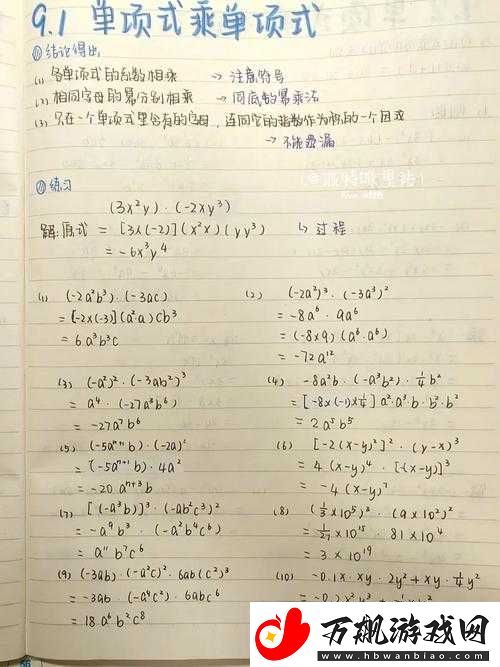 9.1 单项式乘单项式
(1) 结论得出
(1) 各单项式的系数相乘 → 注意符号
(2) 相同字母的幂分别相乘 → 同底数幂乘法
(3) 只在一个单项式里含有的字母，连同它的指数作为积的一个因式
→ 不能遗漏
(1) 练习
(3x²y)·(-2xy³)
解:原式 = [3×(-2)](x²x)(yy³) ↳ 过程
= -6x³y⁴
(1) (-2a²b³)·(-3ac)
= [-2×(-3)](a²·a)cb³
= 6a³b³c
(2) (-2a²)³·(-3a³)²
= -8a⁶·9a⁶
= (-8×9)(a⁶·a⁶)
= -72a¹²
(3) (-a²)²·(-3ab²)³
= a⁴·(-27a³b⁶)
= -27a⁷b⁶
(4) -8a²b·(-a³b²)·¼b²
= [-8×(-1)×¼]a²·a³·b·b²·b²
= 2a⁵b⁵
(5) (-5aⁿ⁺¹b)·(-2a)²
= (-5aⁿ⁺¹b)·4a²
= -20aⁿ⁺³b
(6) [-2(x-y)²]²·(y-x)³
= 4(x-y)⁴·[-(x-y)]³
= -4(x-y)⁷
(7) [(-a³b)]³·(-ab²c³)²
= -a⁹b³·(-a²b⁴c⁶)
= a¹¹b⁷c⁶
(8) (⅓×10⁵)³·(9×10²)²
= 1/27×10¹⁵·81×10⁴
= 3×10¹⁹
(9) (-3ab)·(-a²c)²·6ab(c²)³
= -3ab·(-a⁴c²)·6abc⁶
= 18a⁶b²c⁸
(10) -0.1x·xy·2y²+xy·¼y²
万飙游戏网
www.hbwanbiao.com